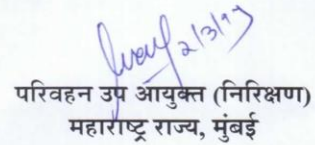 2/3/17
परिवहन उप आयुक्त (निरिक्षण)
महाराष्ट्र राज्य, मुंबई